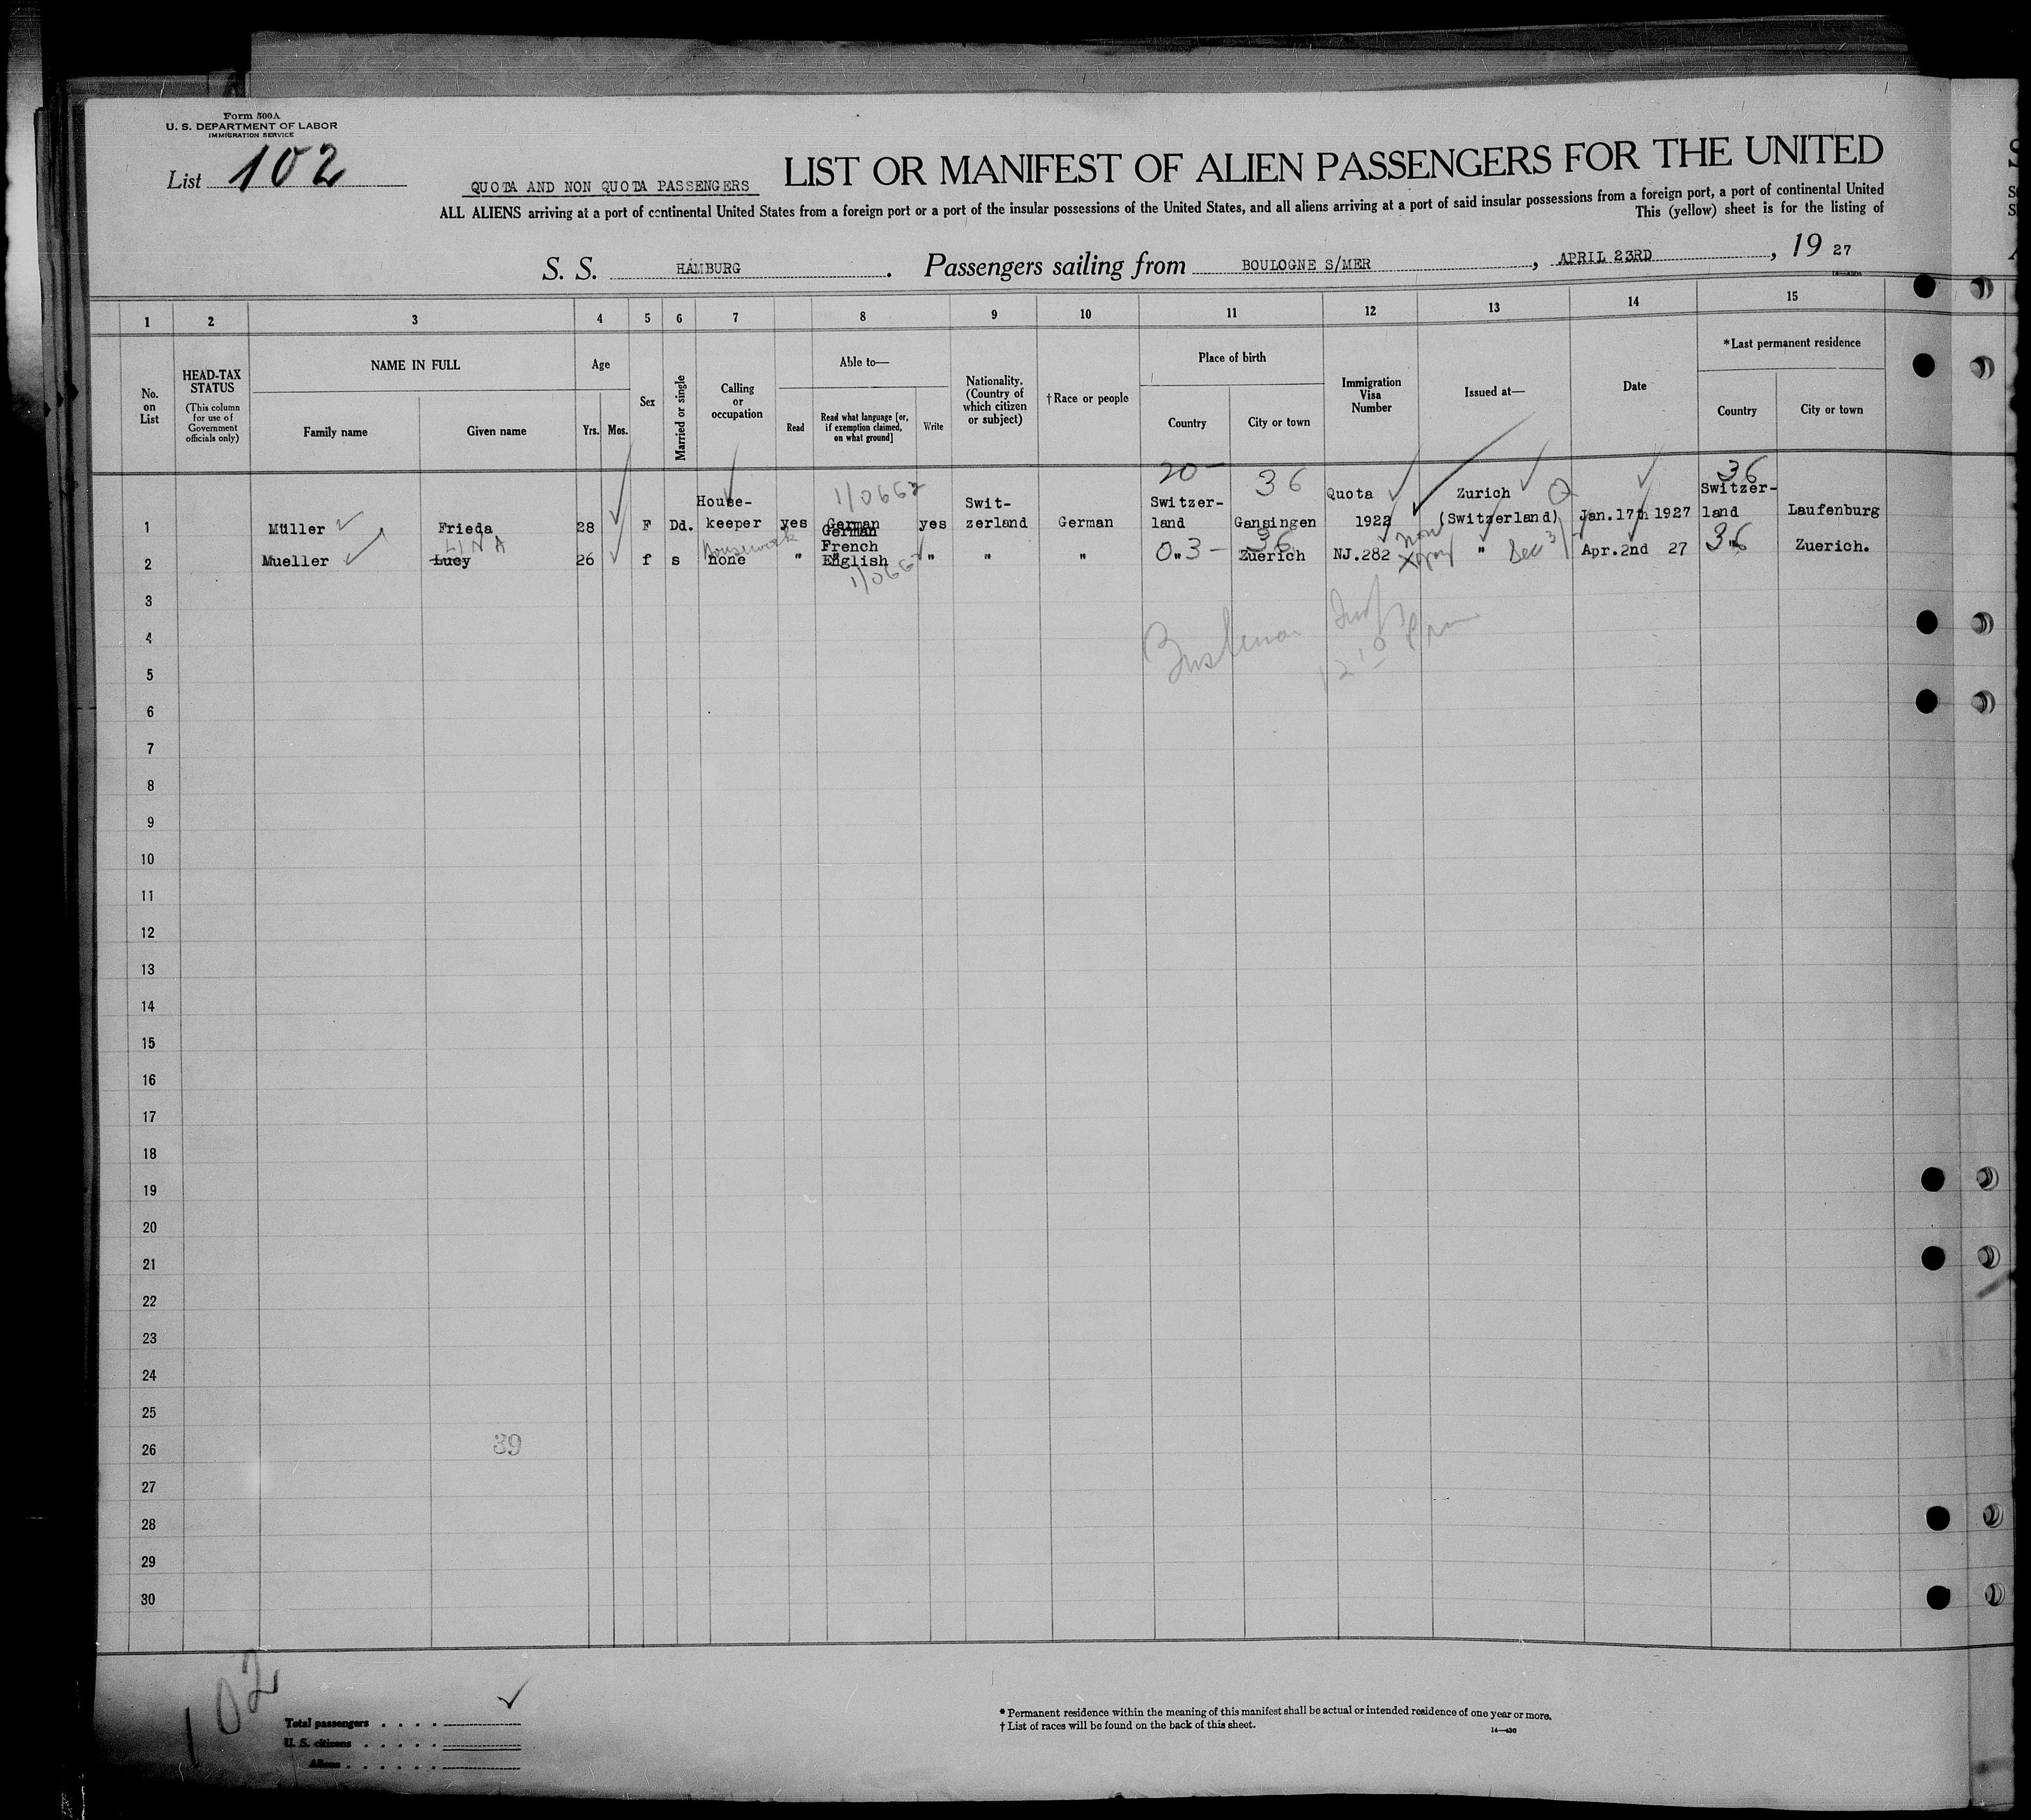 Form 500A
U. S. DEPARTMENT OF LABOR
IMMIGRATION SERVICE
List 102
QUOTA AND NON QUOTA PASSENGERS LIST OR MANIFEST OF ALIEN PASSENGERS FOR THE UNITED
ALL ALIENS arriving at a port of continental United States from a foreign port or a port of the insular possessions of the United States, and all aliens arriving at a port of said insular possessions from a foreign port, a port of continental United
This (yellow) sheet is for the listing of
S. S. HAMBURG. Passengers sailing from BOULOGNE S/MER, APRIL 23RD, 19 27
1 2 3 4 5 6 7 8 9 10 11 12 13 14 15
No. on List
HEAD-TAX STATUS
(This column for use of Government officials only)
NAME IN FULL
Family name Given name
Age
Yrs. Mos.
Sex
Married or single
Calling or occupation
Able to—
Read
Read what language [or, if exemption claimed, on what ground]
Write
Nationality. (Country of which citizen or subject)
† Race or people
Place of birth
Country City or town
Immigration Visa Number
Issued at—
Date
* Last permanent residence
Country City or town
20- 36 36
1/0662
House- Swit- Switzer- Quota Zurich Q Switzer-
1 Müller Frieda 28 F Dd. keeper yes German yes zerland German land Gansingen 1922 (Switzerland) Jan.17th 1927 land Laufenburg
LINA housework German
French 03- 36 non 36
2 Mueller Lucy 26 f s none " English " " " " Zuerich NJ.282 " Apr.2nd 27 " Zuerich.
3
4
5
6
7
8
9
10
11
12
13
14
15
16
17
18
19
20
21
22
23
24
25
26
39
27
28
29
30
102
Total passengers
U. S. citizens
Aliens
* Permanent residence within the meaning of this manifest shall be actual or intended residence of one year or more.
† List of races will be found on the back of this sheet.
14—430